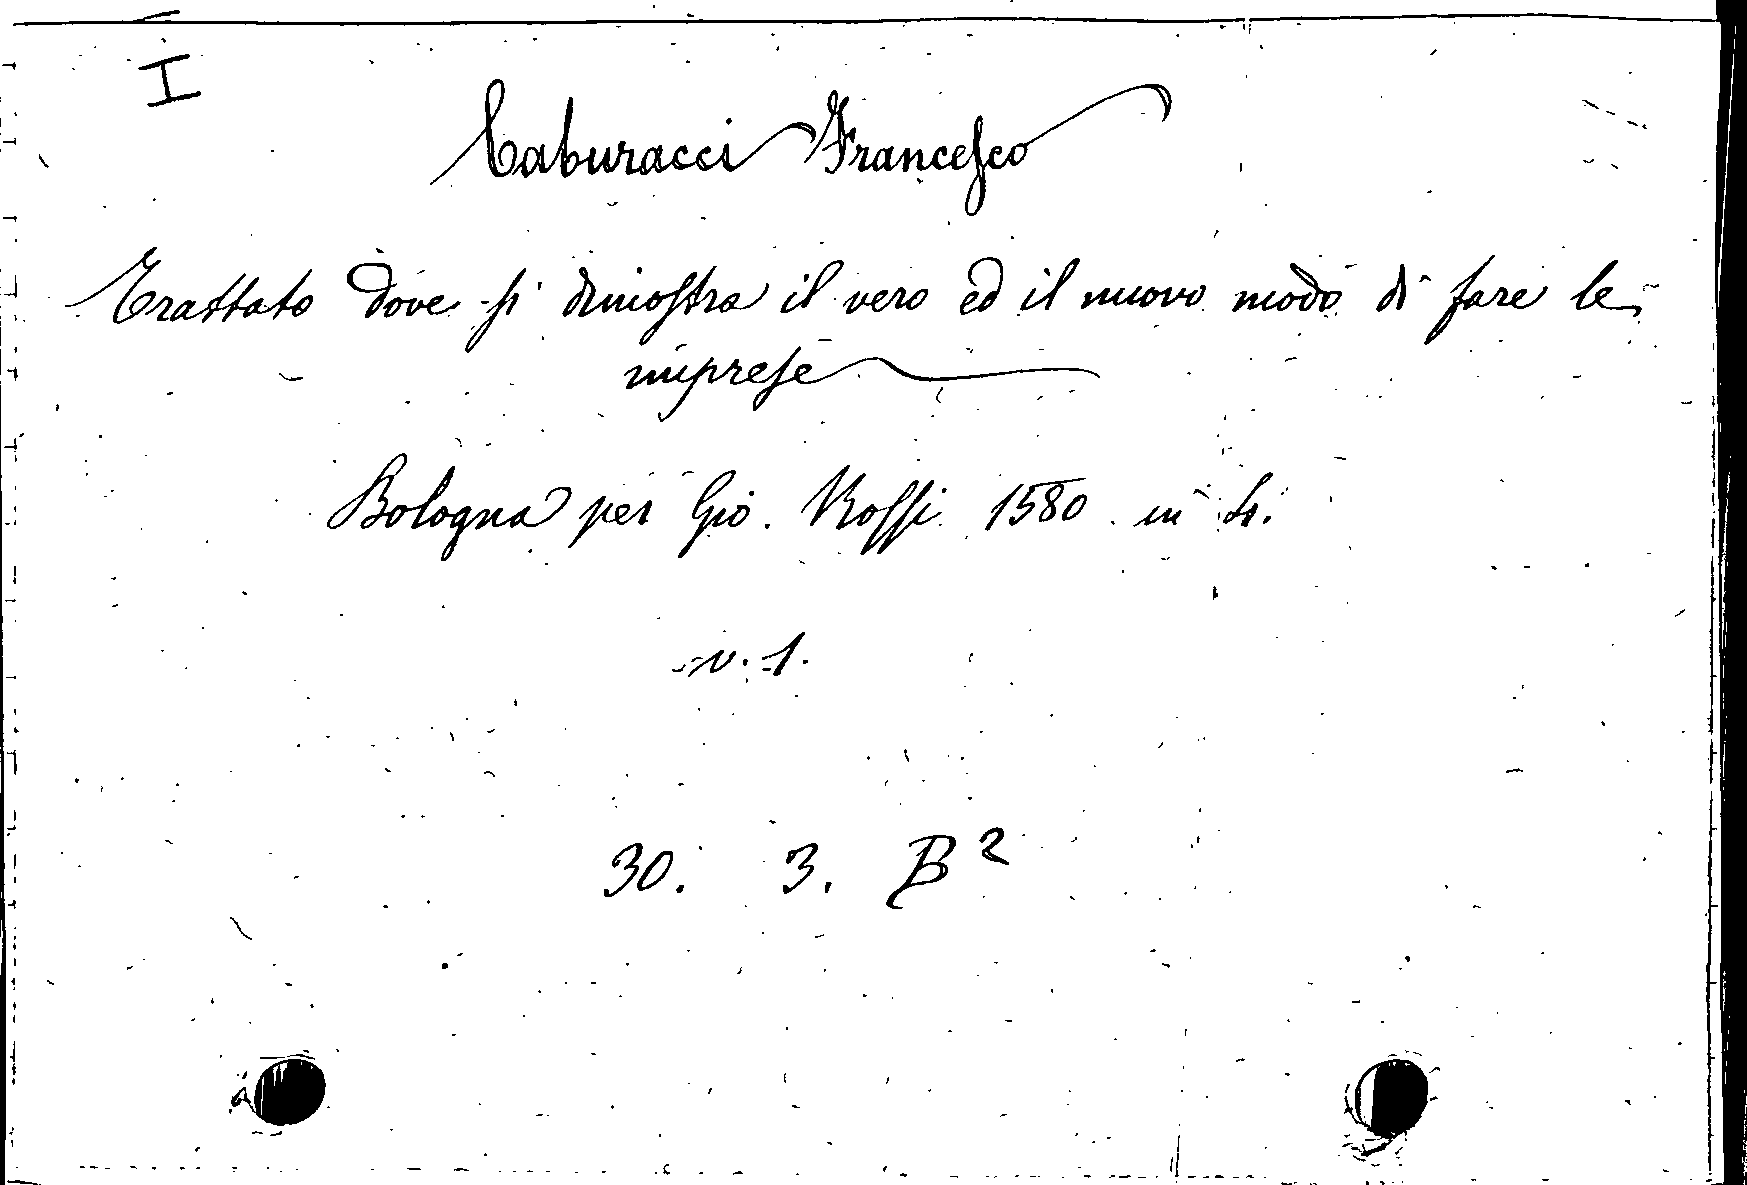 I
Caburacci Francesco
Trattato dove si dimostra il vero ed il nuovo modo di fare le
imprese
Bologna per Gio. Rossi 1580 in 4.
v. 1.
30. 3. B²